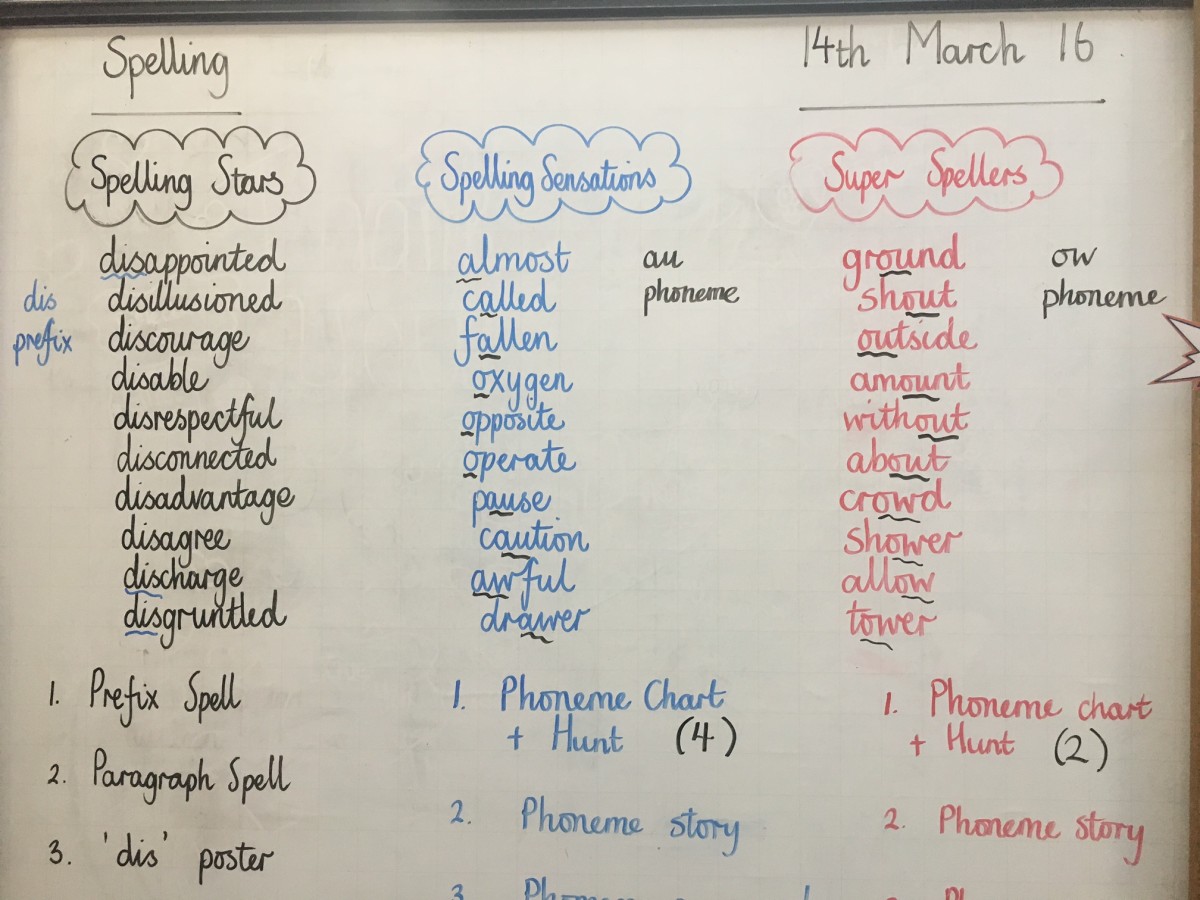 Spelling
14th March 16
Spelling Stars
disappointed
dis
disillusioned
prefix
discourage
disable
disrespectful
disconnected
disadvantage
disagree
discharge
disgruntled
1. Prefix Spell
2. Paragraph Spell
3. 'dis' poster
Spelling Sensations
almost
au
called
phoneme
fallen
oxygen
opposite
operate
pause
caution
awful
drawer
1. Phoneme Chart
+ Hunt (4)
2. Phoneme story
3.
Super Spellers
ground
ow
shout
phoneme
outside
amount
without
about
crowd
shower
allow
tower
1. Phoneme chart
+ Hunt (2)
2. Phoneme story